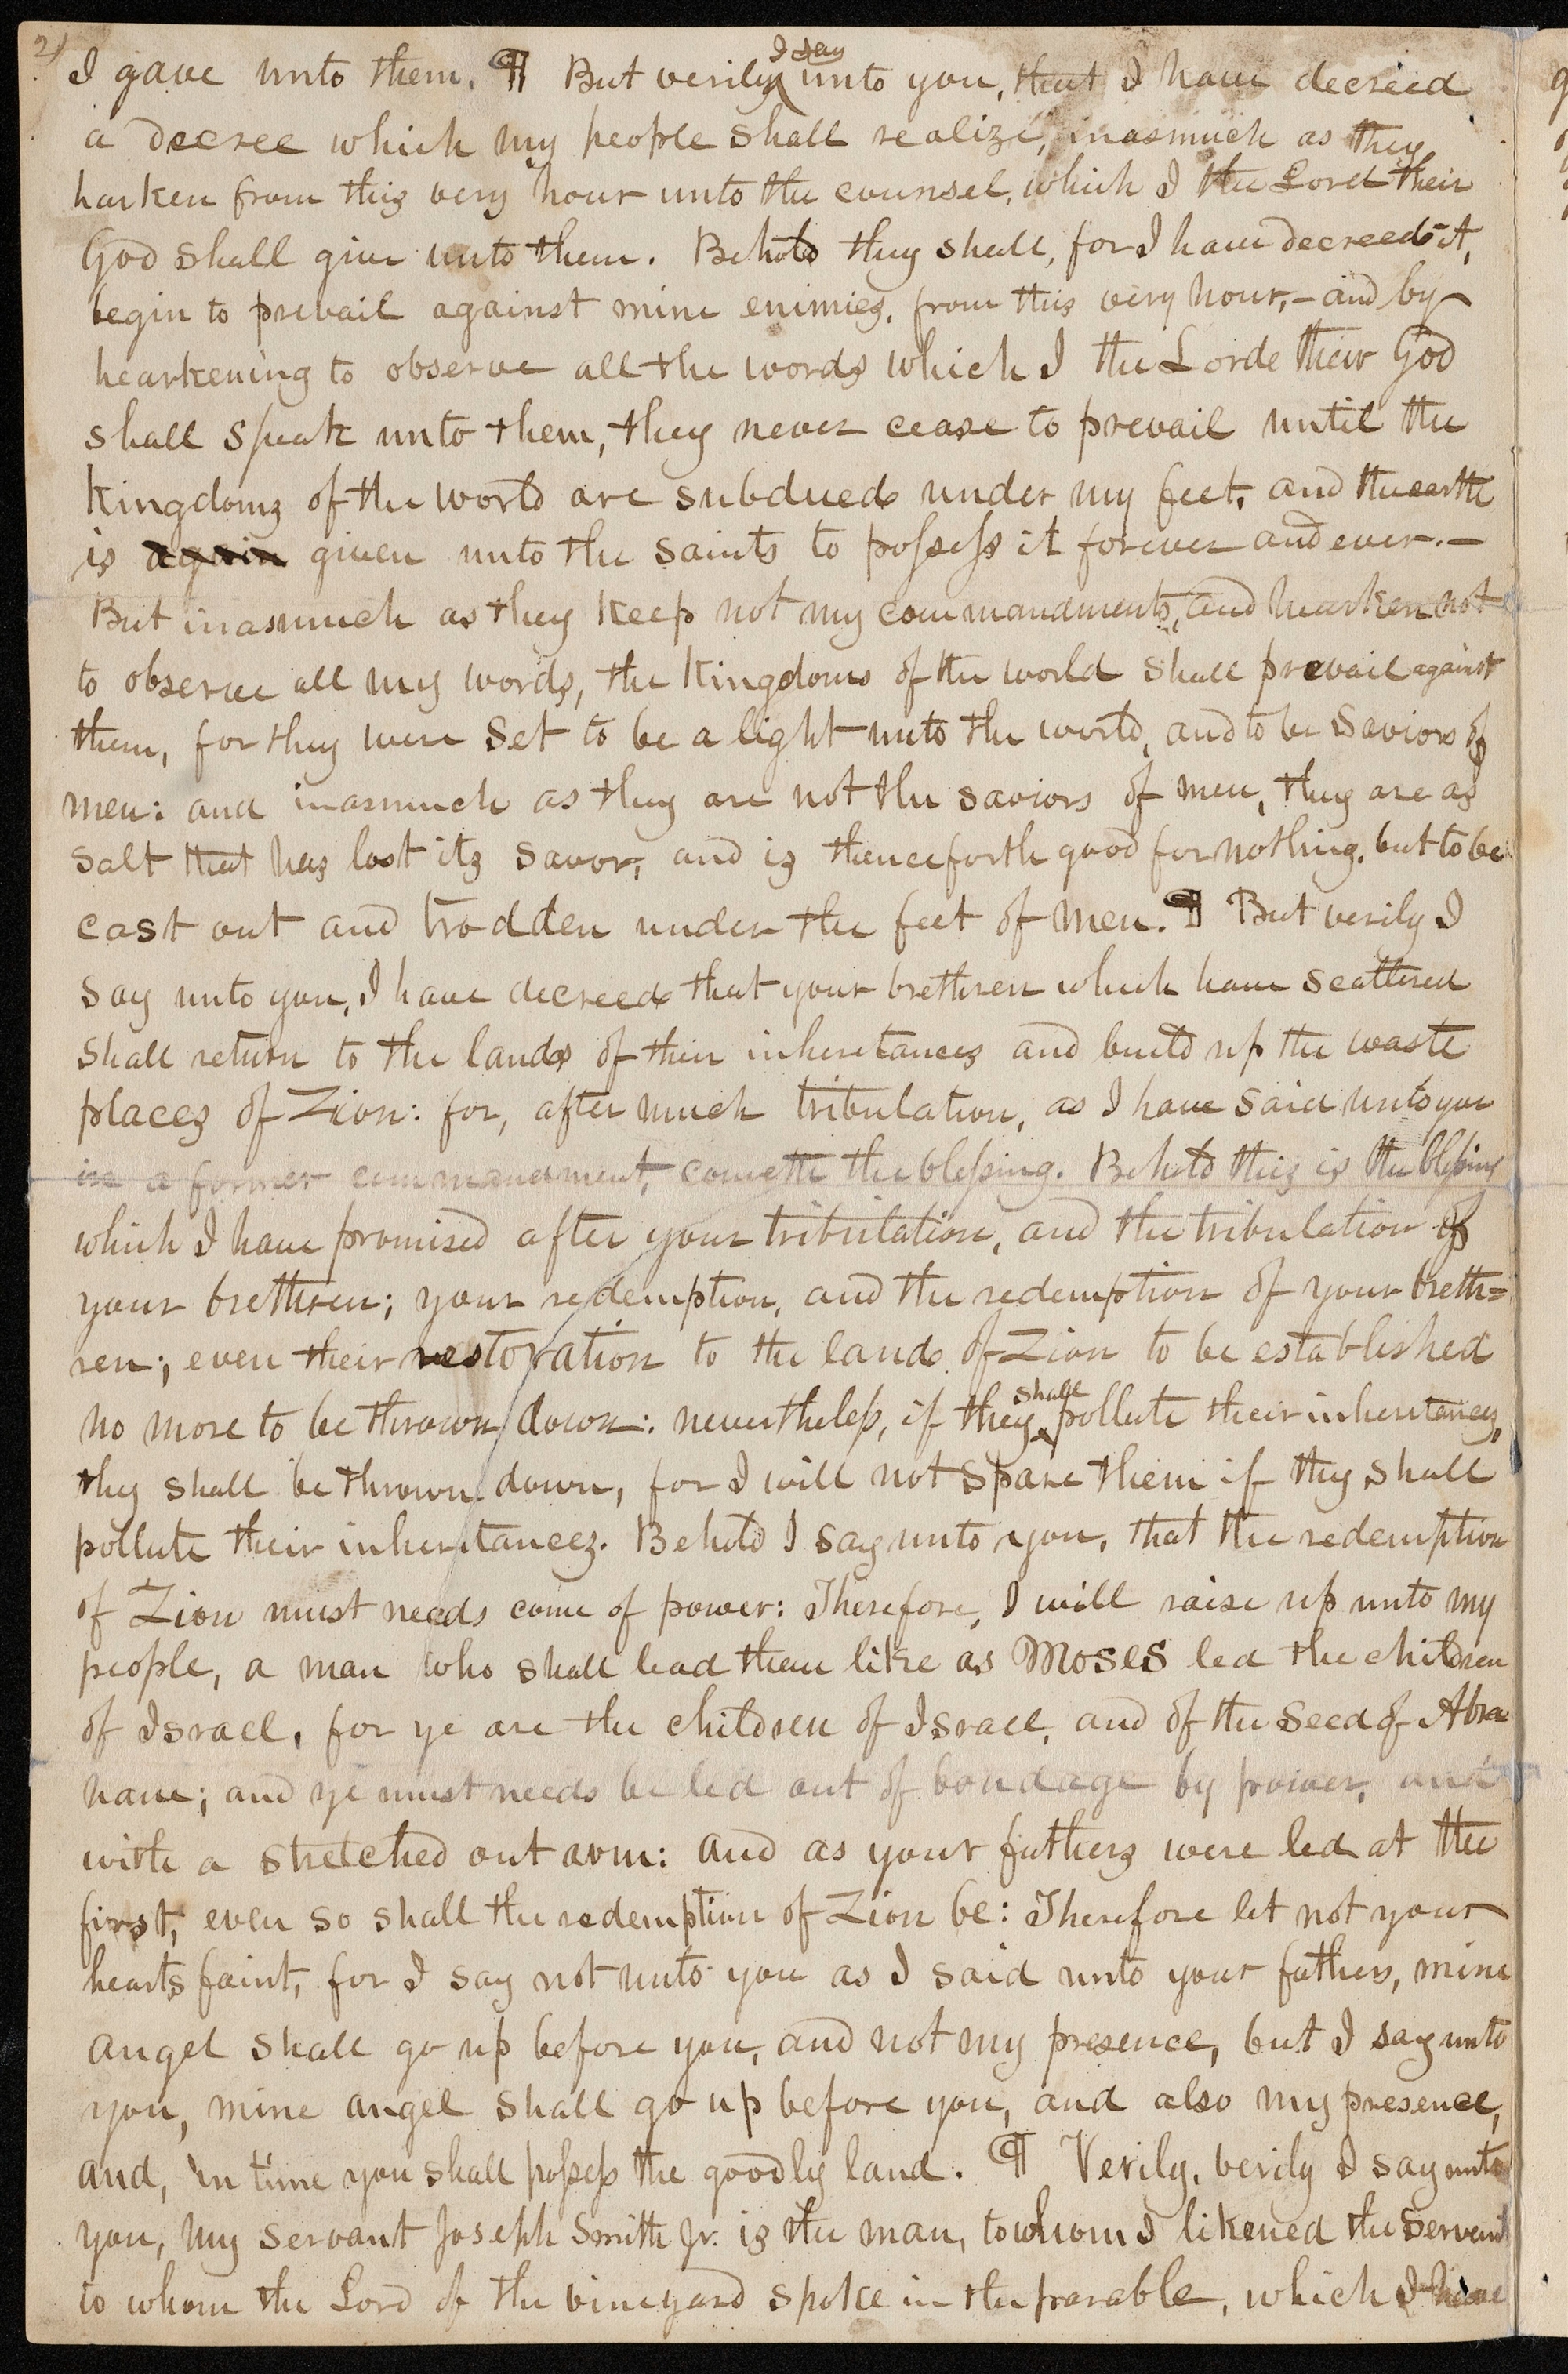 2)
I say
I gave unto them. ¶ But verily unto you, that I have decreed
a decree which my people shall realize, inasmuch as they
harken from this very hour unto the counsel, which I the Lord their
God shall give unto them. Behold they shall, for I have decreed it,
begin to prevail against mine enimies, from this very hour,– and by
hearkening to observe all the words which I the Lorde their God
shall speak unto them, they never cease to prevail until the
kingdoms of the world are subdued under my feet, and the earth
is again given unto the saints to possess it forever and ever.–
But inasmuch as they keep not my commandments, and hearken not
to observe all my words, the kingdoms of the world shall prevail against
them, for they were set to be a light unto the world, and to be saviors of
men: and inasmuch as they are not the saviors of men, they are as
salt that has lost its savor, and is thenceforth good for nothing, but to be
cast out and trodden under the feet of men. ¶ But verily I
say unto you, I have decreed that your brethren which have scattered
shall return to the lands of their inheritances and build up the waste
places of Zion: for, after much tribulation, as I have said unto you
in a former commandment, cometh the blessing. Behold this is the blessing
which I have promised after your tribulation, and the tribulation of
your brethren; your redemption, and the redemption of your breth=
ren; even their restoration to the land of Zion to be established
shall
no more to be thrown down: nevertheless, if they pollute their inheritances,
they shall be thrown down, for I will not spare them if they shall
pollute their inheritances. Behold I say unto you, that the redemption
of Zion must needs come of power: Therefore, I will raise up unto my
people, a man who shall lead them like as Moses led the children
of Israel, for ye are the children of Israel, and of the seed of Abra
ham; and ye must needs be led out of bondage by power, and
with a stretched out arm: and as your fathers were led at the
first, even so shall the redemption of Zion be: Therefore let not your
hearts faint, for I say not unto you as I said unto your fathers, mine
angel shall go up before you, and not my presence, but I say unto
you, mine angel shall go up before you, and also my presence,
and, in time you shall possess the goodly land. ¶ Verily, verily I say unto
you, my servant Joseph Smith Jr. is the man, to whom I likened the servant
to whom the Lord of the vineyard spoke in the parable, which I have